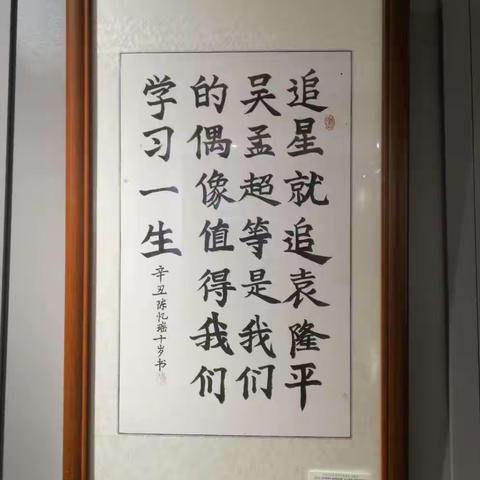 追星就追袁隆平
吴孟超等是我们
的偶像值得我们
学习一生
辛丑陈忆瑶十岁书